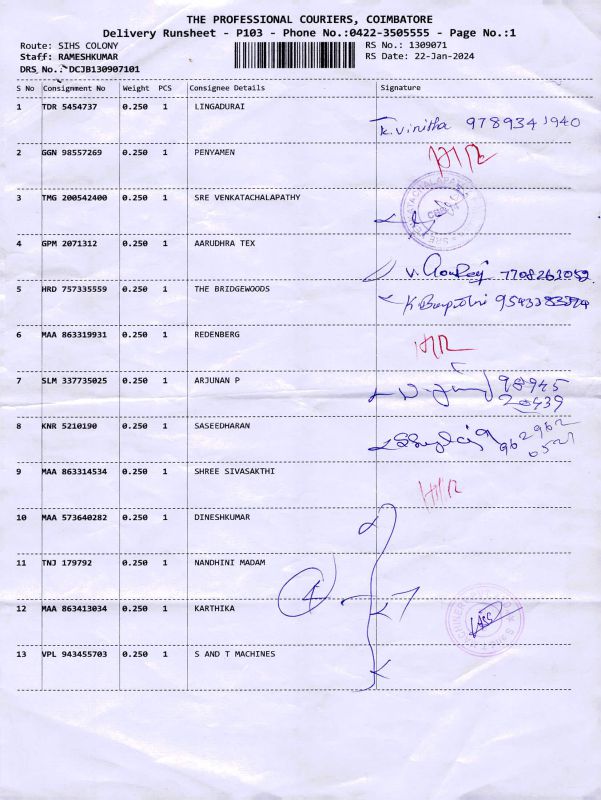 THE PROFESSIONAL COURIERS, COIMBATORE
Delivery Runsheet - P103 - Phone No.:0422-3505555 - Page No.:1
Route: SIHS COLONY RS No.: 1309071
Staff: RAMESHKUMAR RS Date: 22-Jan-2024
DRS No.: DCJB130907101
S No Consignment No Weight PCS Consignee Details Signature
1 TDR 5454737 0.250 1 LINGADURAI
K.Vinitha 9789341940
2 GGN 98557269 0.250 1 PENYAMEN
3 TMG 200542400 0.250 1 SRE VENKATACHALAPATHY
4 GPM 2071312 0.250 1 AARUDHRA TEX
7708263052
5 HRD 757335559 0.250 1 THE BRIDGEWOODS
6 MAA 863319931 0.250 1 REDENBERG
7 SLM 337735025 0.250 1 ARJUNAN P
98945
20439
8 KNR 5210190 0.250 1 SASEEDHARAN
9 MAA 863314534 0.250 1 SHREE SIVASAKTHI
10 MAA 573640282 0.250 1 DINESHKUMAR
11 TNJ 179792 0.250 1 NANDHINI MADAM
4
12 MAA 863413034 0.250 1 KARTHIKA
13 VPL 943455703 0.250 1 S AND T MACHINES